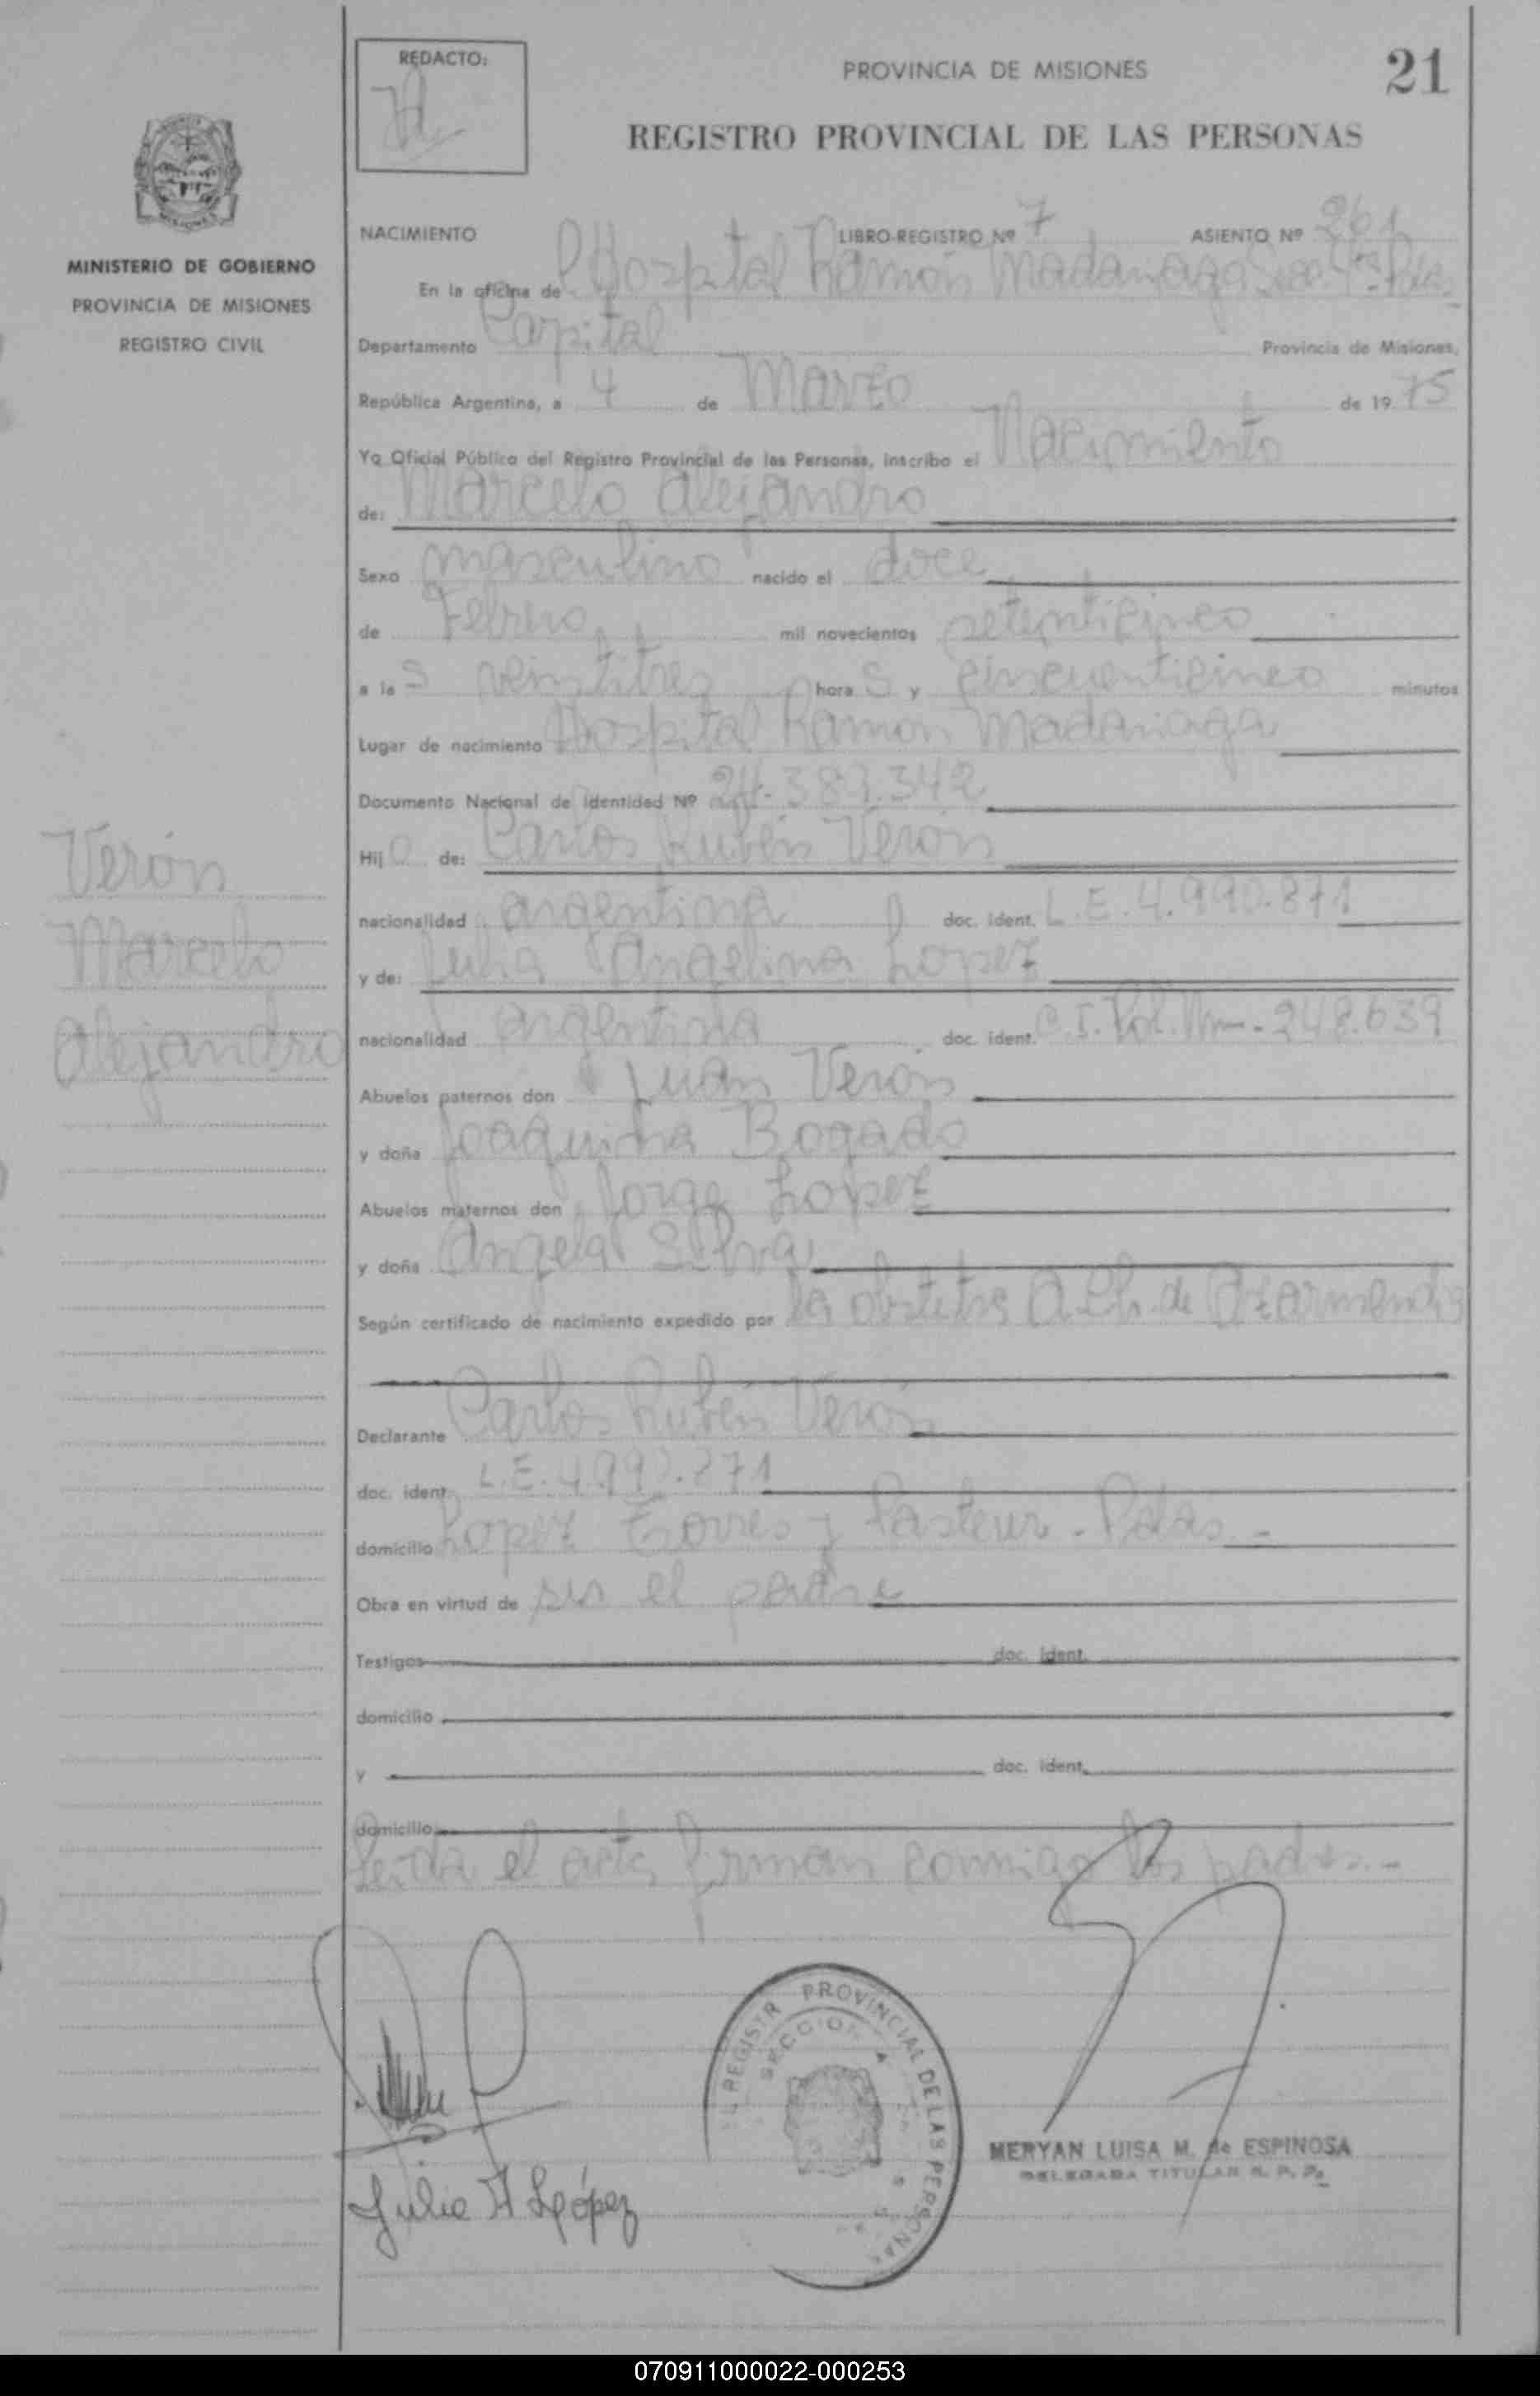 REDACTO:
PROVINCIA DE MISIONES
21
REGISTRO PROVINCIAL DE LAS PERSONAS
MINISTERIO DE GOBIERNO
PROVINCIA DE MISIONES
REGISTRO CIVIL
NACIMIENTO LIBRO-REGISTRO Nº 7 ASIENTO Nº 261
En la oficina de Hospital Ramón Madariaga Pdas
Departamento Capital Provincia de Misiones,
República Argentina, a 4 de Marzo de 1975
Yo Oficial Público del Registro Provincial de las Personas, inscribo el Nacimiento
de: Marcelo Alejandro
Sexo masculino nacido el doce
de Febrero mil novecientos setenticinco
a las veintitres horas y cincuenticinco minutos
Lugar de nacimiento Hospital Ramón Madariaga
Documento Nacional de Identidad Nº 24.389.342
Hijo de: Carlos Rubén Verón
nacionalidad argentina doc. ident. L.E.4.990.871
y de: Julia Angelina Lopez
nacionalidad argentina doc. ident. C.I.Pol.Mnes-248.639
Abuelos paternos don Juan Verón
y doña Joaquina Bogado
Abuelos maternos don Jorge Lopez
y doña Angela Silva
Según certificado de nacimiento expedido por la obstetra A. Ch. de Azarmendia
Declarante Carlos Rubén Verón
doc. ident. L.E.4.990.871
domicilio Lopez Torres y Pasteur - Pdas -
Obra en virtud de ser el padre
Testigos doc. ident.
domicilio
y doc. ident.
domicilio
Leida el acta firman conmigo los padres.-
Verón
Marcelo
Alejandro
Julia A López
REGISTR PROVINCIAL DE LAS PERSONAS
SECCION
MERYAN LUISA M. de ESPINOSA
DELEGADA TITULAR R. P. P.
070911000022-000253